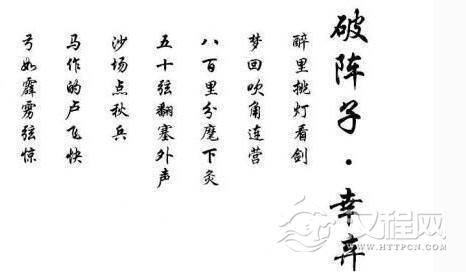 破阵子·幸弃
醉里挑灯看剑
梦回吹角连营
八百里分麾下灸
五十弦翻塞外声
沙场点秋兵
马作的卢飞快
弓如霹雳弦惊
文程网
WWW.HTTPCN.COM